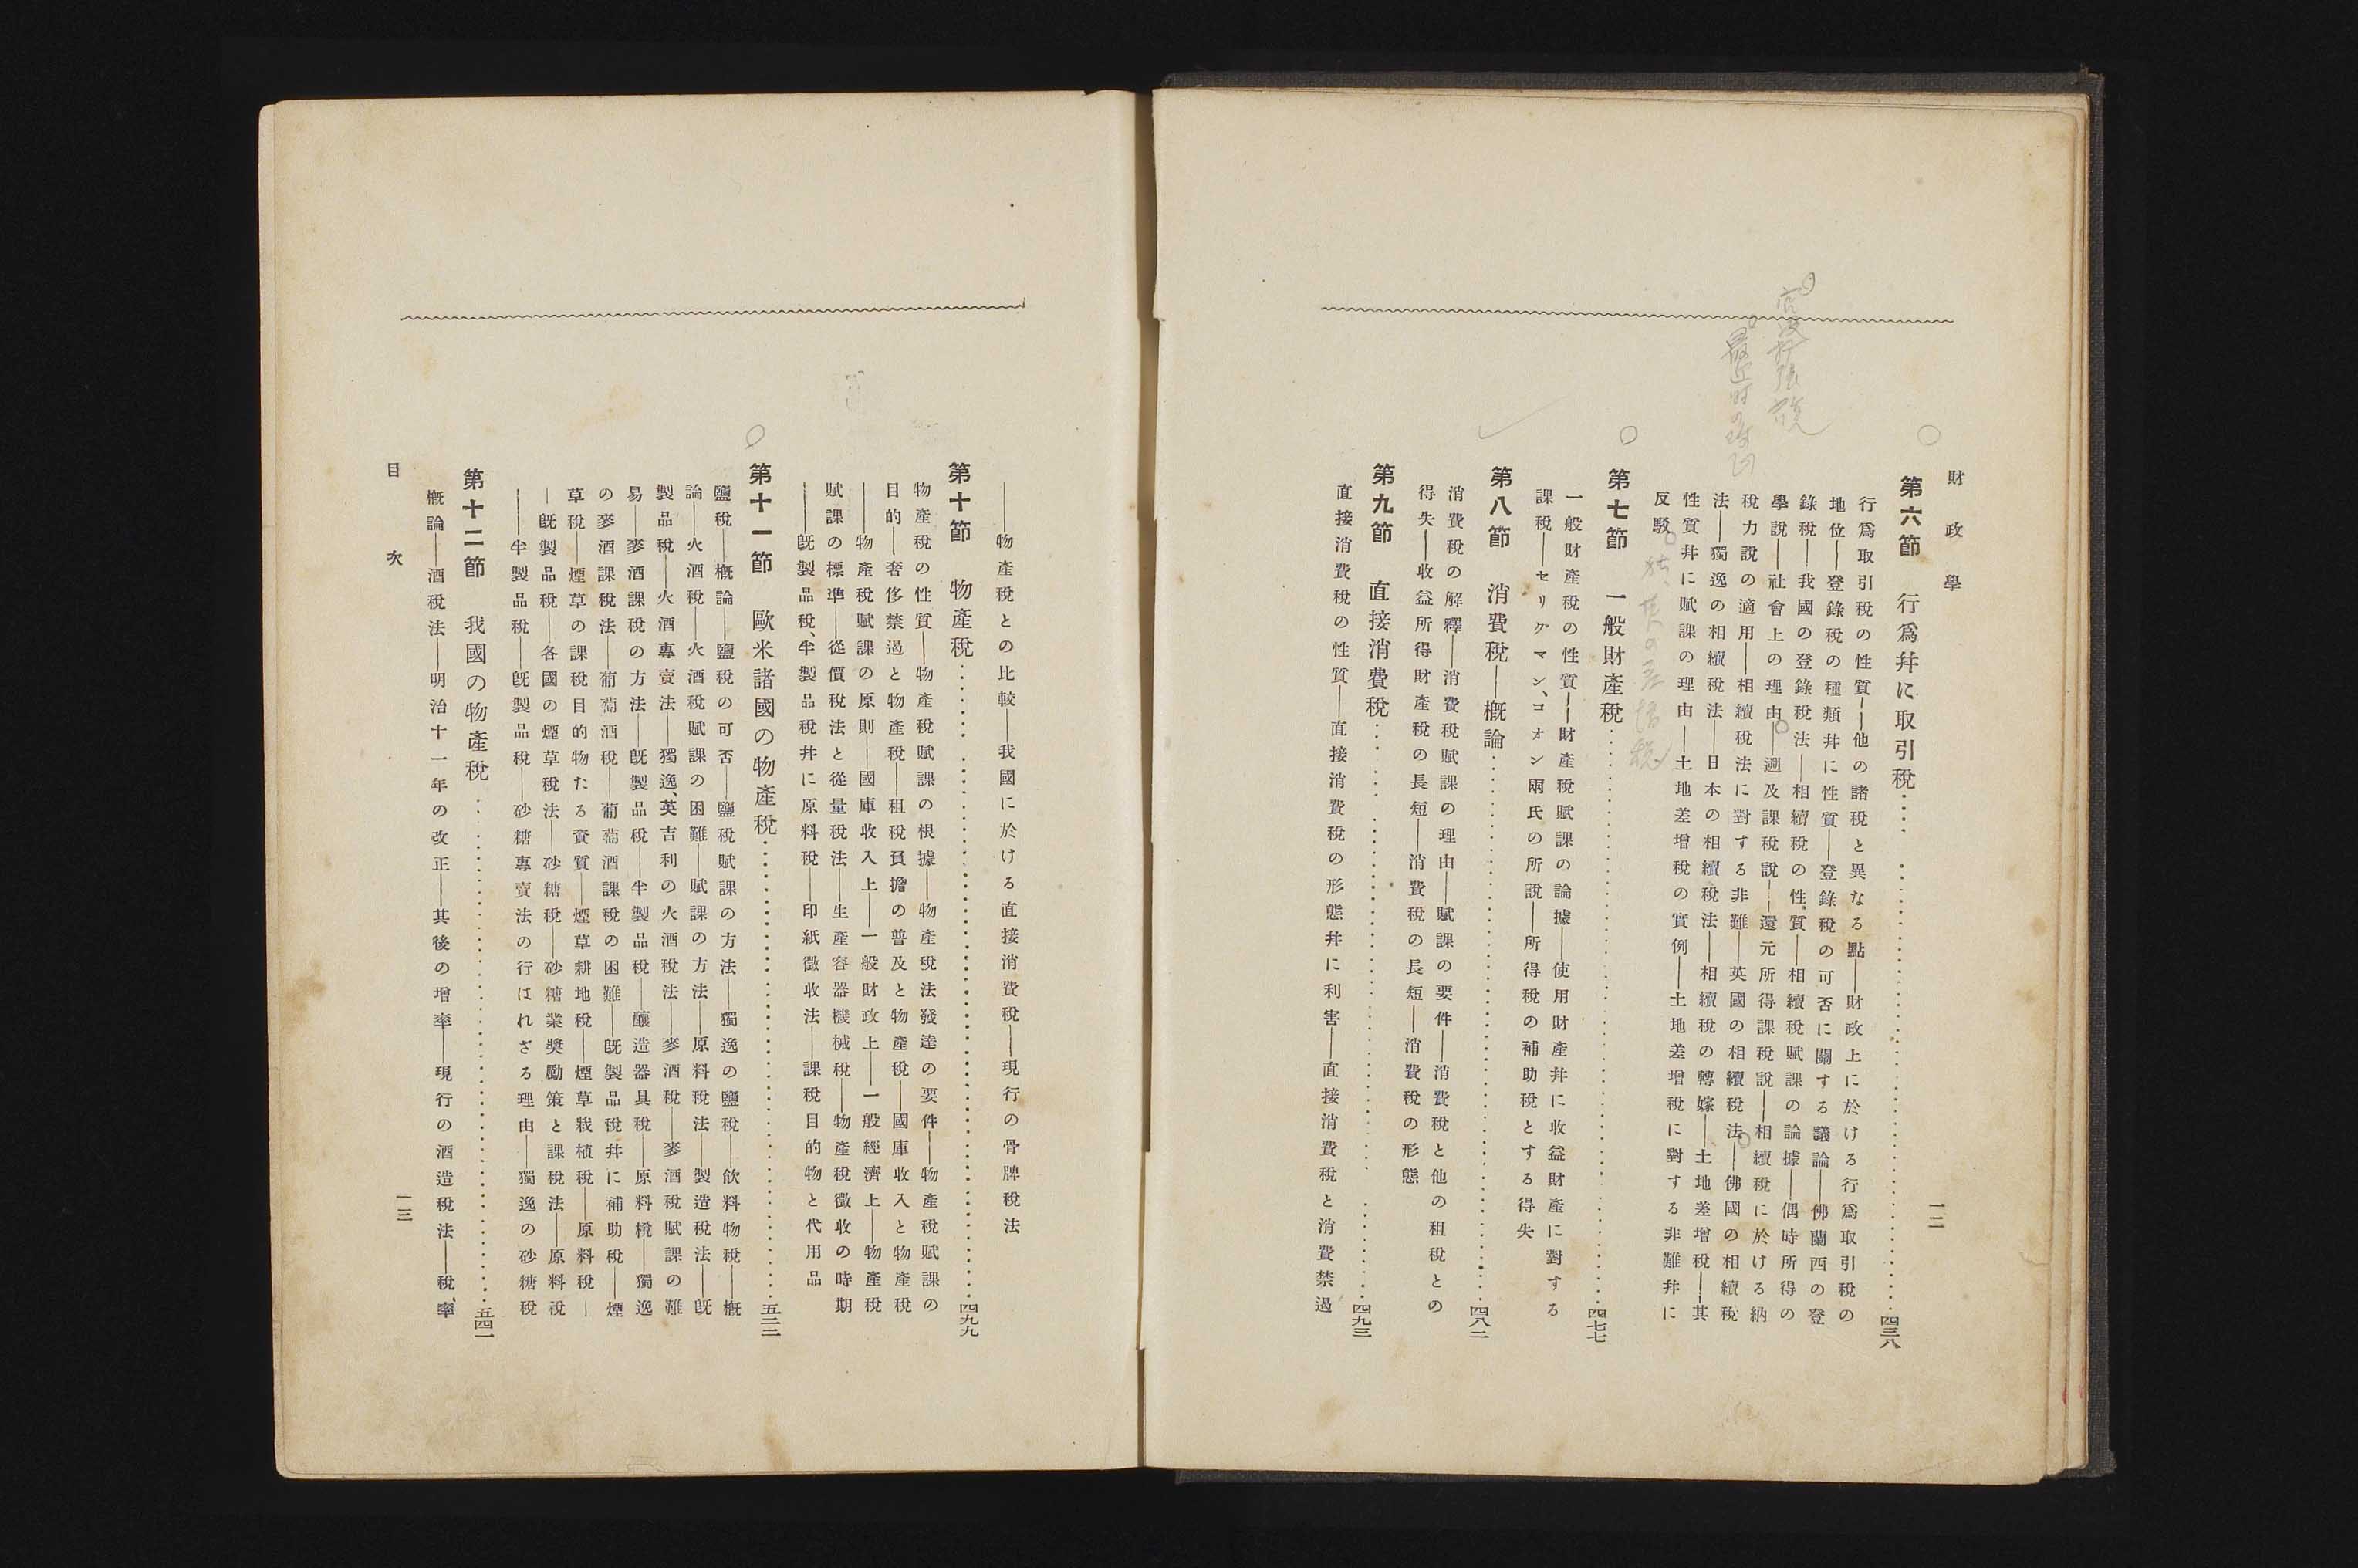 財政學
一二
第六節　行爲幷に取引稅……四三八
行爲取引稅の性質——他の諸稅と異なる點——財政上に於ける行爲取引稅の
地位——登錄稅の種類幷に性質——登錄稅の可否に關する議論——佛蘭西の登
錄稅——我國の登錄稅法——相續稅の性質——相續稅賦課の論據——偶時所得の
學說——社會上の理由——遡及課稅說——還元所得課稅說——相續稅に於ける納
稅力說の適用——相續稅法に對する非難——英國の相續稅法——佛國の相續稅
法——獨逸の相續稅法——日本の相續稅法——相續稅の轉嫁——土地差增稅——其
性質幷に賦課の理由——土地差增稅の實例——土地差增稅に對する非難幷に
反駁
第七節　一般財產稅……四七七
一般財產稅の性質——財產稅賦課の論據——使用財產幷に收益財產に對する
課稅——セリグマン、コオン兩氏の所說——所得稅の補助稅とする得失
第八節　消費稅——槪論……四八二
消費稅の解釋——消費稅賦課の理由——賦課の要件——消費稅と他の租稅との
得失——收益所得財產稅の長短——消費稅の長短——消費稅の形態
第九節　直接消費稅……四九三
直接消費稅の性質——直接消費稅の形態幷に利害——直接消費稅と消費禁遏
——物產稅との比較——我國に於ける直接消費稅——現行の骨牌稅法
第十節　物產稅……四九九
物產稅の性質——物產稅賦課の根據——物產稅法發達の要件——物產稅賦課の
目的——奢侈禁遏と物產稅——租稅負擔の普及と物產稅——國庫收入と物產稅
——物產稅賦課の原則——國庫收入上——一般財政上——一般經濟上——物產稅
賦課の標準——從價稅法と從量稅法——生產容器機械稅——物產稅徵收の時期
——旣製品稅、半製品稅幷に原料稅——印紙徵收法——課稅目的物と代用品
第十一節　歐米諸國の物產稅……五二二
鹽稅——槪論——鹽稅の可否——鹽稅賦課の方法——獨逸の鹽稅——飮料物稅——槪
論——火酒稅——火酒稅賦課の困難——賦課の方法——原料稅法——製造稅法——旣
製品稅——火酒專賣法——獨逸、英吉利の火酒稅法——麥酒稅——麥酒稅賦課の難
易——麥酒課稅の方法——旣製品稅——半製品稅——釀造器具稅——原料稅——獨逸
の麥酒課稅法——葡萄酒稅——葡萄酒課稅の困難——旣製品稅幷に補助稅——煙
草稅——煙草の課稅目的物たる資質——煙草耕地稅——煙草栽植稅——原料稅—
—旣製品稅——各國の煙草稅法——砂糖稅——砂糖業奬勵策と課稅法——原料稅
——半製品稅——旣製品稅——砂糖專賣法の行はれざる理由——獨逸の砂糖稅
第十二節　我國の物產稅……五四一
槪論——酒稅法——明治十一年の改正——其後の增率——現行の酒造稅法——稅率、
目次
一三